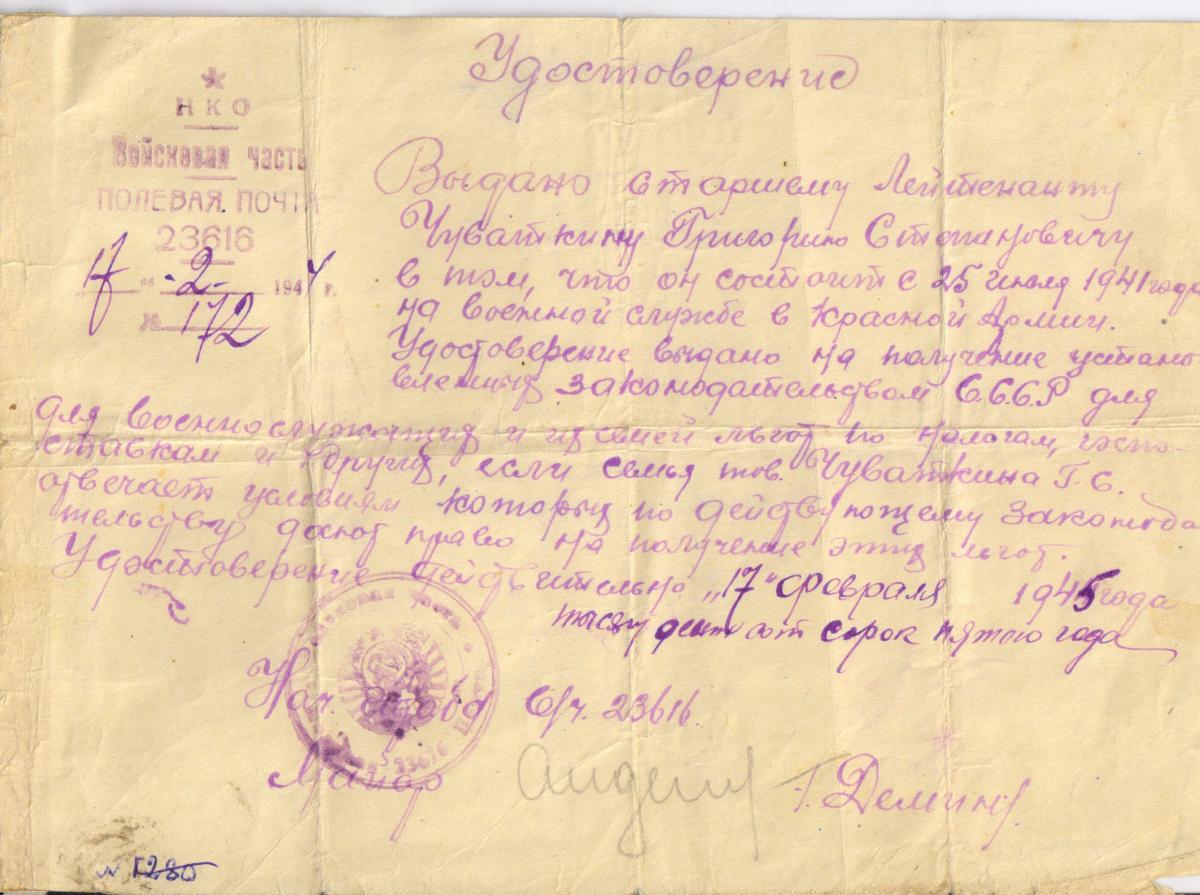 Удостоверение
НКО
Войсковая часть
ПОЛЕВАЯ ПОЧТА
23616
17 " -2- 1944 г.
№ 172
Выдано старшему Лейтенанту
Чуваткину Григорию Степановичу
в том, что он состоит с 25 июля 1941 года
на военной службе в Красной Армии.
Удостоверение выдано на получение устано
вленных законодательством С.С.С.Р для
для военнослужащих и их семей льгот по налогам, госпо-
ставкам и других, если семья тов. Чуваткина Г. С.
отвечает условиям которых по действующему законода
тельству дают право на получение этих льгот.
Удостоверение действительно „17" февраля 1945 года
сорок пятого года
Нач. в/ч. 23616.
Майор Г. Демин
N 1280